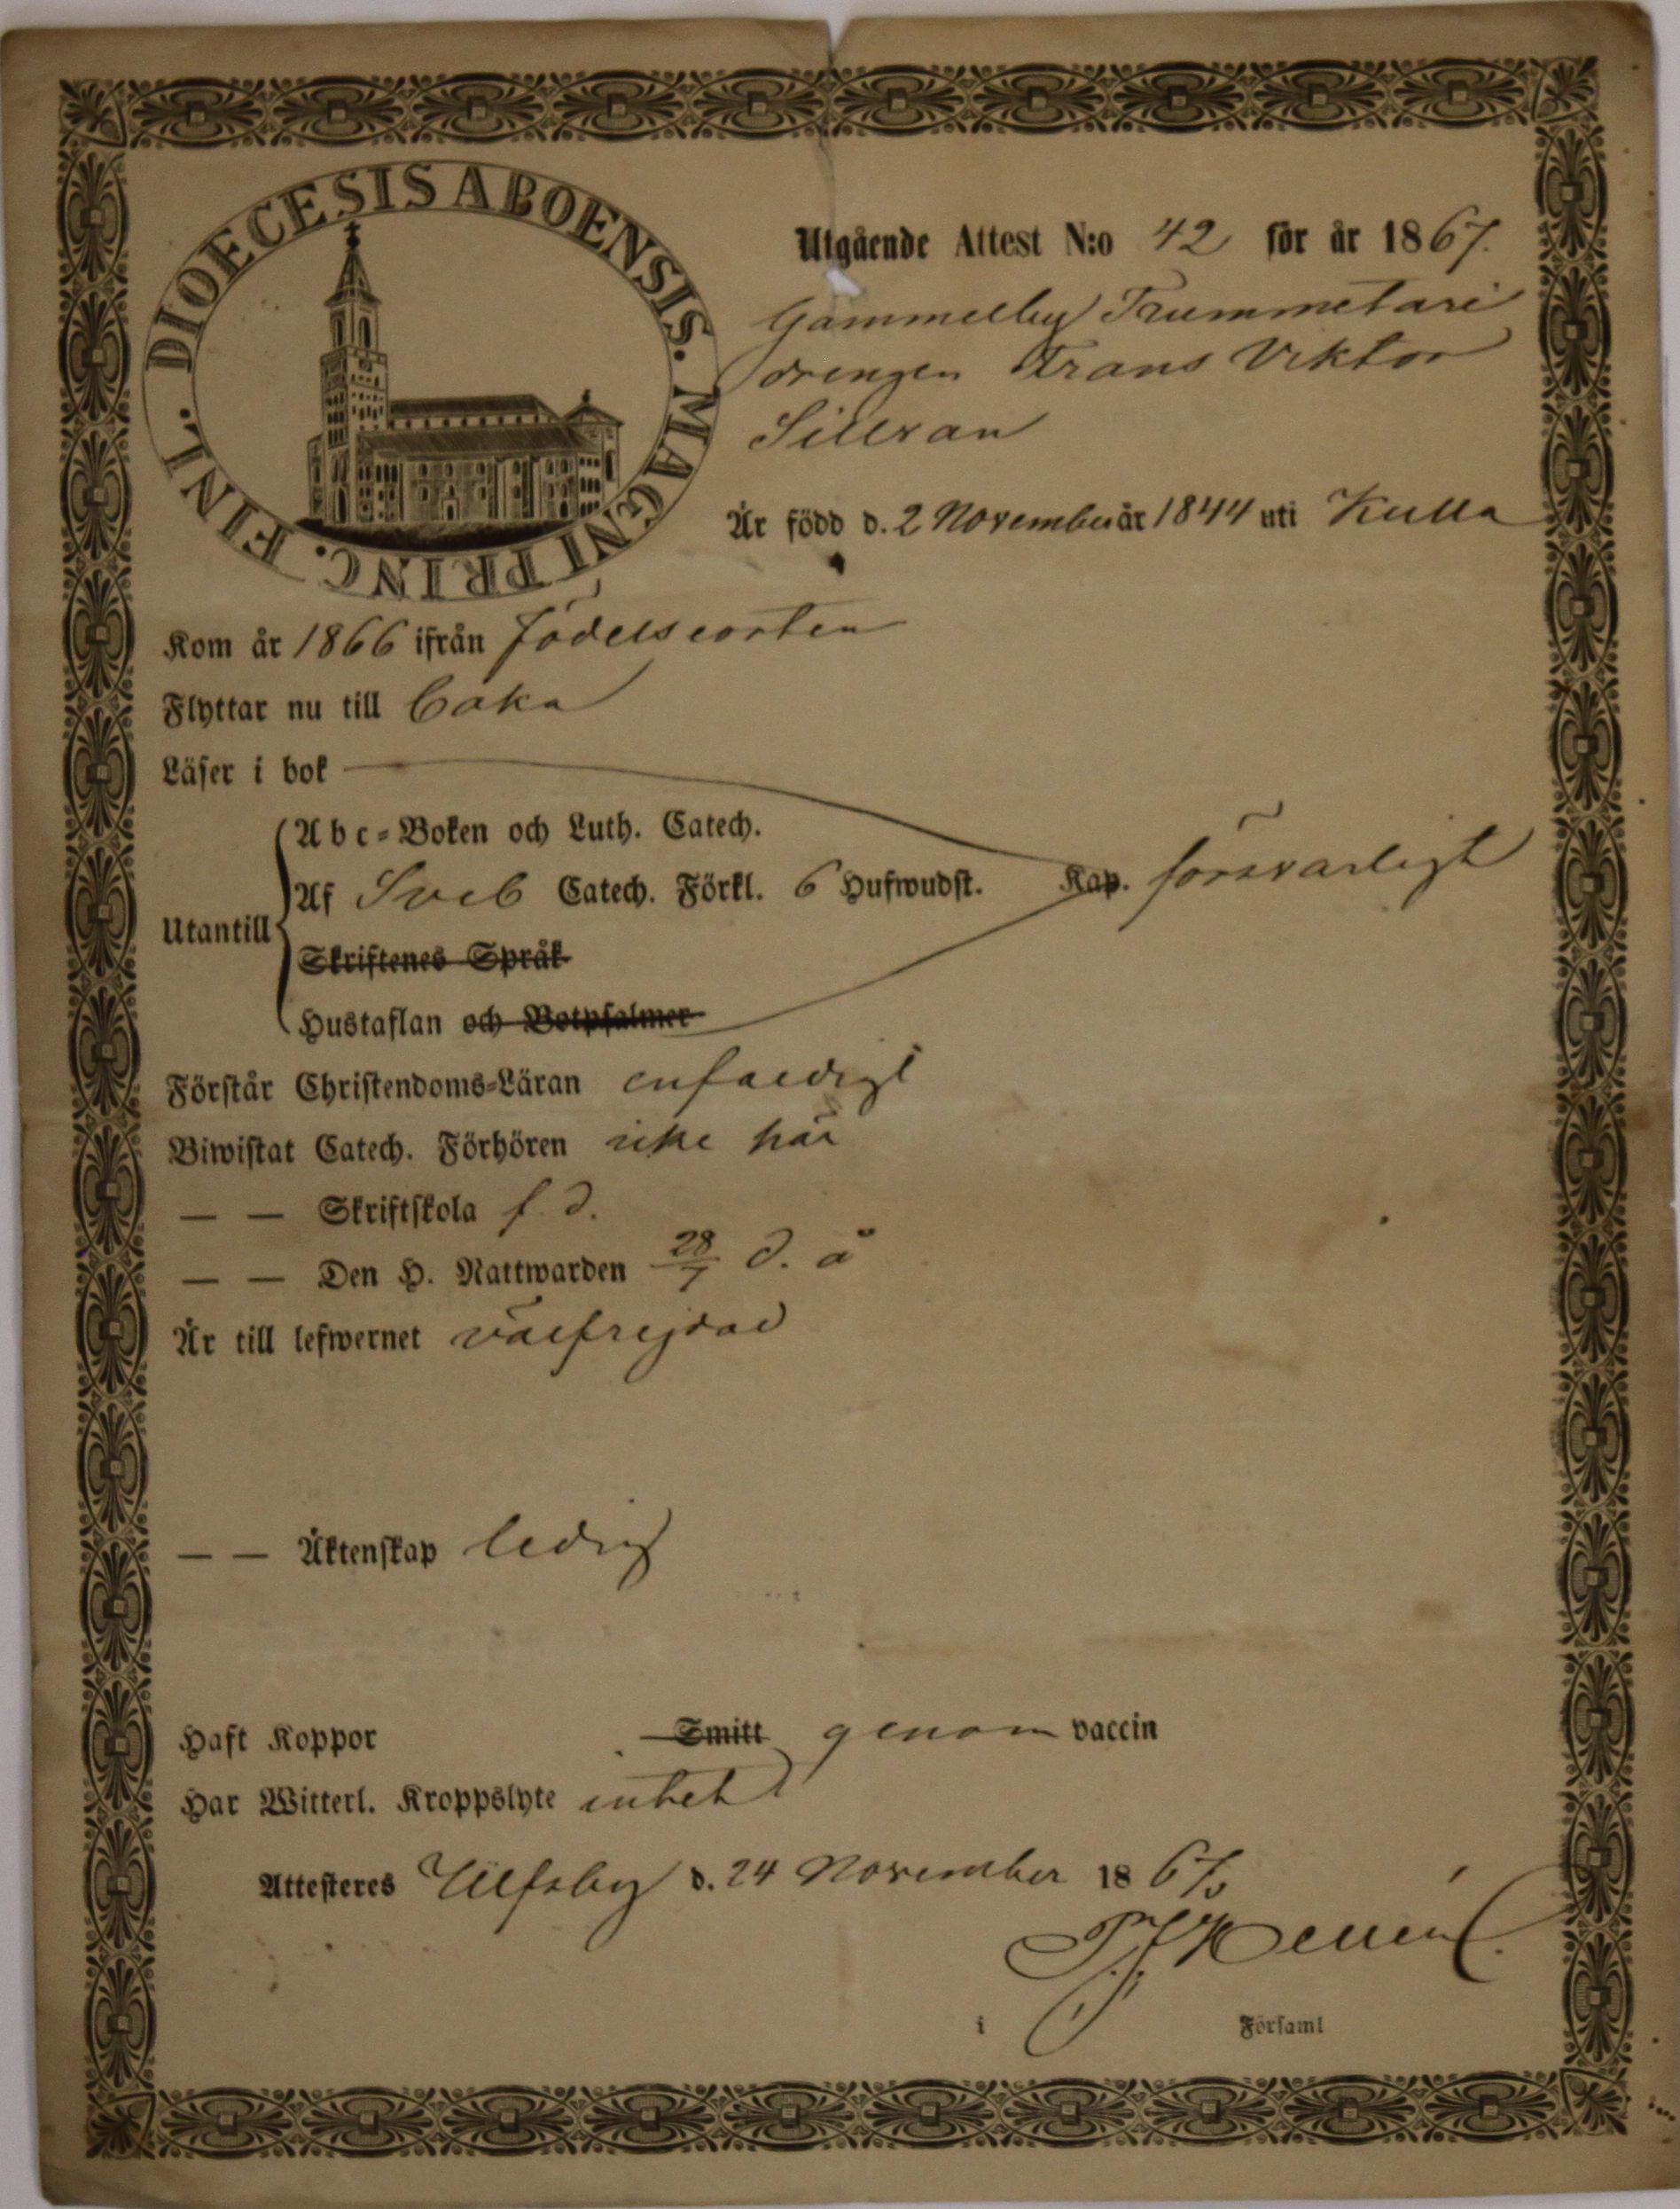 DIOECESIS ABOENSIS. MAGNI PRINC. FINL.
Utgående Attest N:o 42 för år 1867.
Gammelby Trummetari
drengen Frans Viktor
Sillvan
Är född d. 2 November år 1844 uti Kulla
Kom år 1866 ifrån födelseorten
Flyttar nu till
Läser i bok
Abc-Boken och Luth. Catech.
Utantill Af Sveb Catech. Förkl. 6 Hufwudst. Kap. försvarligt
Skriftenes Språk
Hustaflan och Botpsalmer
Förstår Christendoms-Läran enfaldigt
Biwistat Catech. Förhören icke här
— — Skriftskola f. d.
— — Den H. Nattwarden 28/7 d. å
Är till lefwernet välfrejdad
— — Äktenskap ledig
Haft Koppor Smitt genom vaccin
Har Witterl. Kroppslyte intet
Attesteres Ulfsby d. 24 November 1867
i Församl